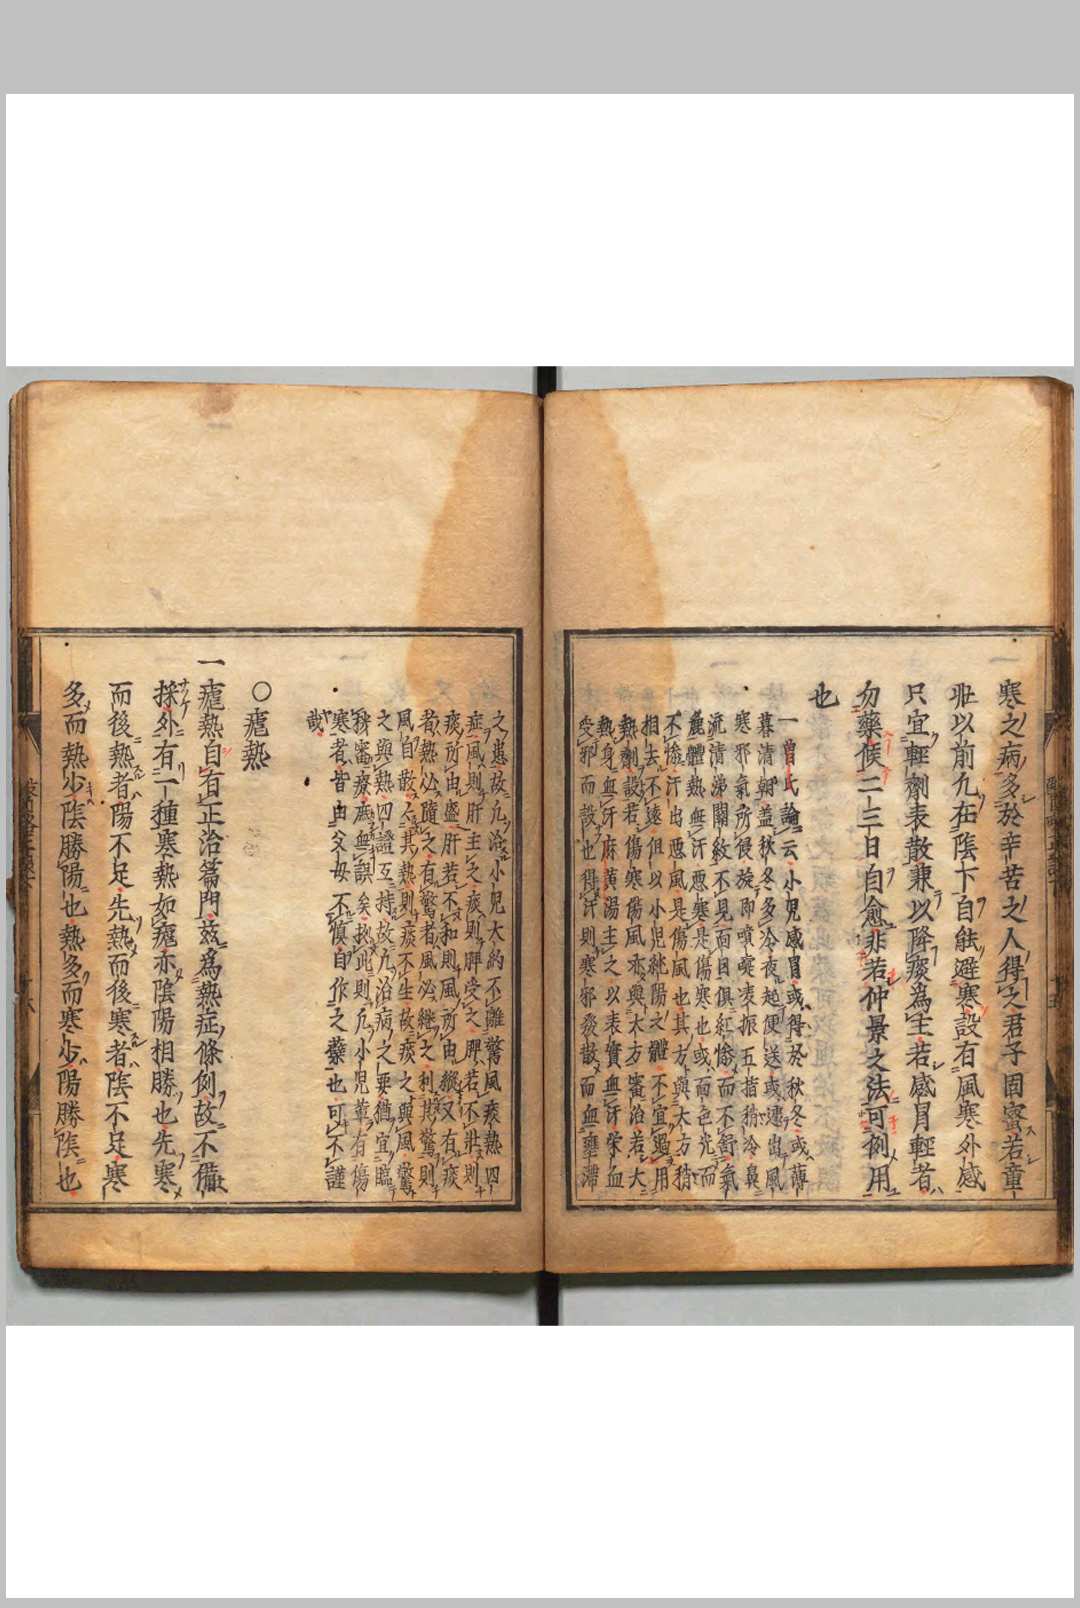 寒之病多於辛苦之人得之君子固蜜若童
壯以前九在陰下自能避寒設有風寒外感
只宜輕劑表散兼以降痰爲主若感冒輕者
勿藥候二三日自愈非若仲景之法可例用
也
一曽氏論云小兒感冒或得於秋冬或薄
暮清朝蓋秋冬多冷夜起便送或遭出風
寒邪氣所侵旋即噴嚏凌振五指稍冷鼻
流清涕關紋不見面目俱紅慘而不舒氣
麄體熱無汗惡寒是傷寒也或面色光而
不慘汗出惡風是傷風也其方與大方稍
相去不遠但以小兒純陽之體不宜過用
熱劑設若傷寒傷風亦與大方審治若大
熱身無汗麻黄湯主之以表實無汗栄血
受邪而設也得汗則寒邪發散而血壅滯
之患故凡治小兒大約不離驚風痰熱四
症風則肝主之痰則脾受之脾若不壯則
痰所由盛肝若不和則風所由縱又有痰
者熱必隨之有驚者風必繼之利其驚則
風自散去其熱則痰不生故痰之與風驚
之與熱四證互持故凡治病之要猶宜臨
䏻審療庶無誤矣執此則凡小兒輩有傷
寒者皆由父母不慎自作之蘖也可不謹
哉
○瘧熱
一瘧熱自有正治篇門茲爲熱症條例故不備
採外有一種寒熱如瘧亦陰陽相勝也先寒
而後熱者陽不足先熱而後寒者陰不足寒
多而熱少陰勝陽也熱多而寒少陽勝陰也